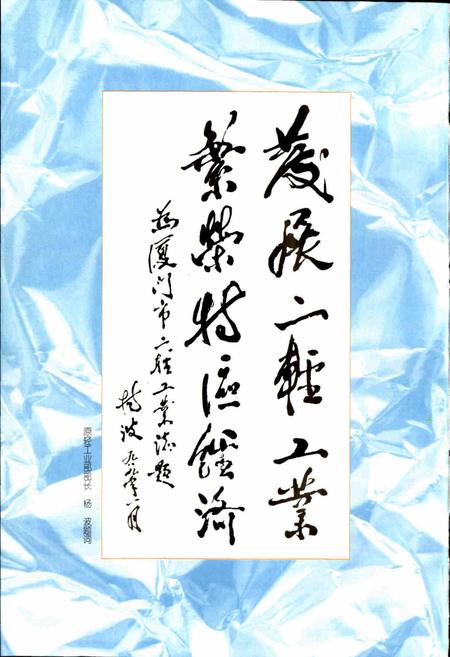 發展二輕工業
繁榮特區經濟
為廈门市二輕工業志題
楊波 九六年一月
原轻工业部部长 杨 波题词